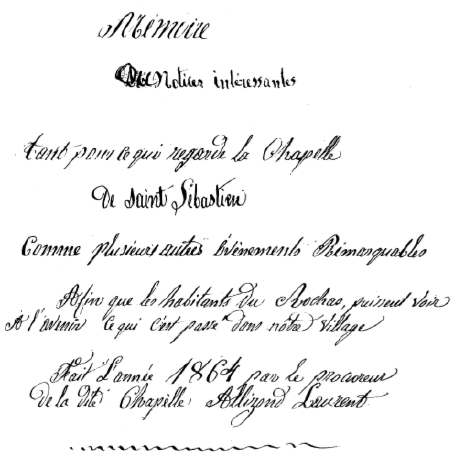 Mémoire
De Notices intéressantes
tant pour ce qui regarde la Chapelle
De saint Sébastien
Comme plusieurs autres Evènements Rémarquables
Afin que les habitants du Rochas, puissent voir
A l'avenir ce qui c'est passé dans nôtre village
Fait L'année 1864 par le procureur
De la dite Chapelle Allizond Laurent